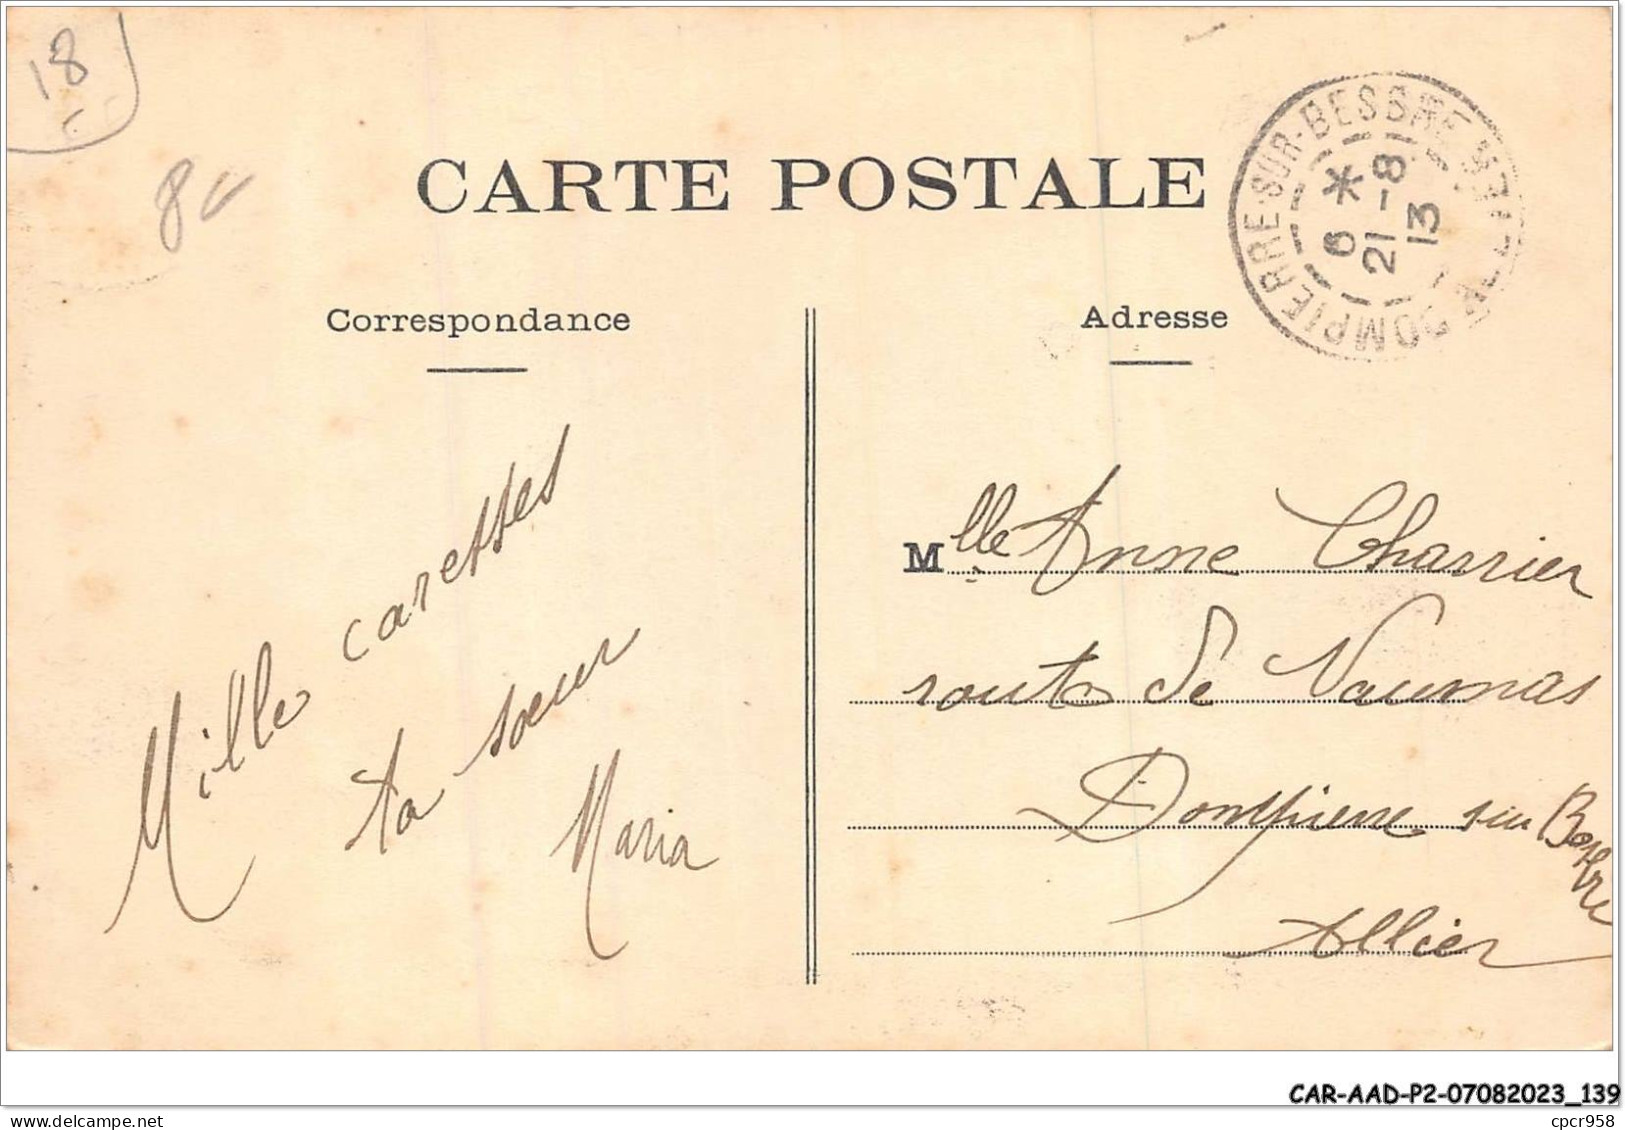 18
8
CARTE POSTALE
DOMPIERRE-SUR-BESBRE
6 *
21 -8
13
Correspondance
Adresse
Mille caresses
ta sœur
Maria
Mlle Anne Charrier
route de Vaumas
Dompierre sur Besbre
Allier
CAR-AAD-P2-07082023_139
cpcr958